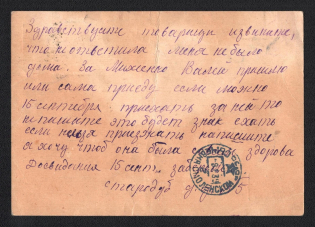 Здравствуйте товарищи извините,
что не ответила меня не было
дома. За Михеенко Валей пришлю
или сама приеду если можно
15 сентября приехать за ней то
напишите это будет знак ехать
если приезжать напишите
я хочу чтоб она была здорова
Досвидания 15 сент.
стародуб